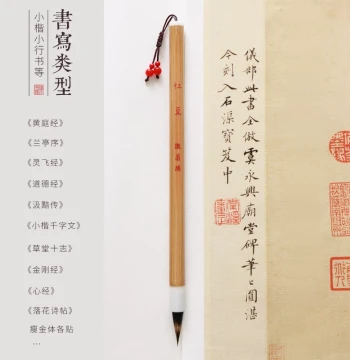 書寫类型
小楷小行书等
《黄庭经》
《兰亭序》
《灵飞经》
《道德经》
《汲黯传》
《小楷千字文》
《草堂十志》
《金刚经》
《心经》
《落花诗帖》
瘦金体各贴
…
仁豆
儀部此書全倣虞永興廟堂碑筆〻圓湛
今刻入石渠寶笈中